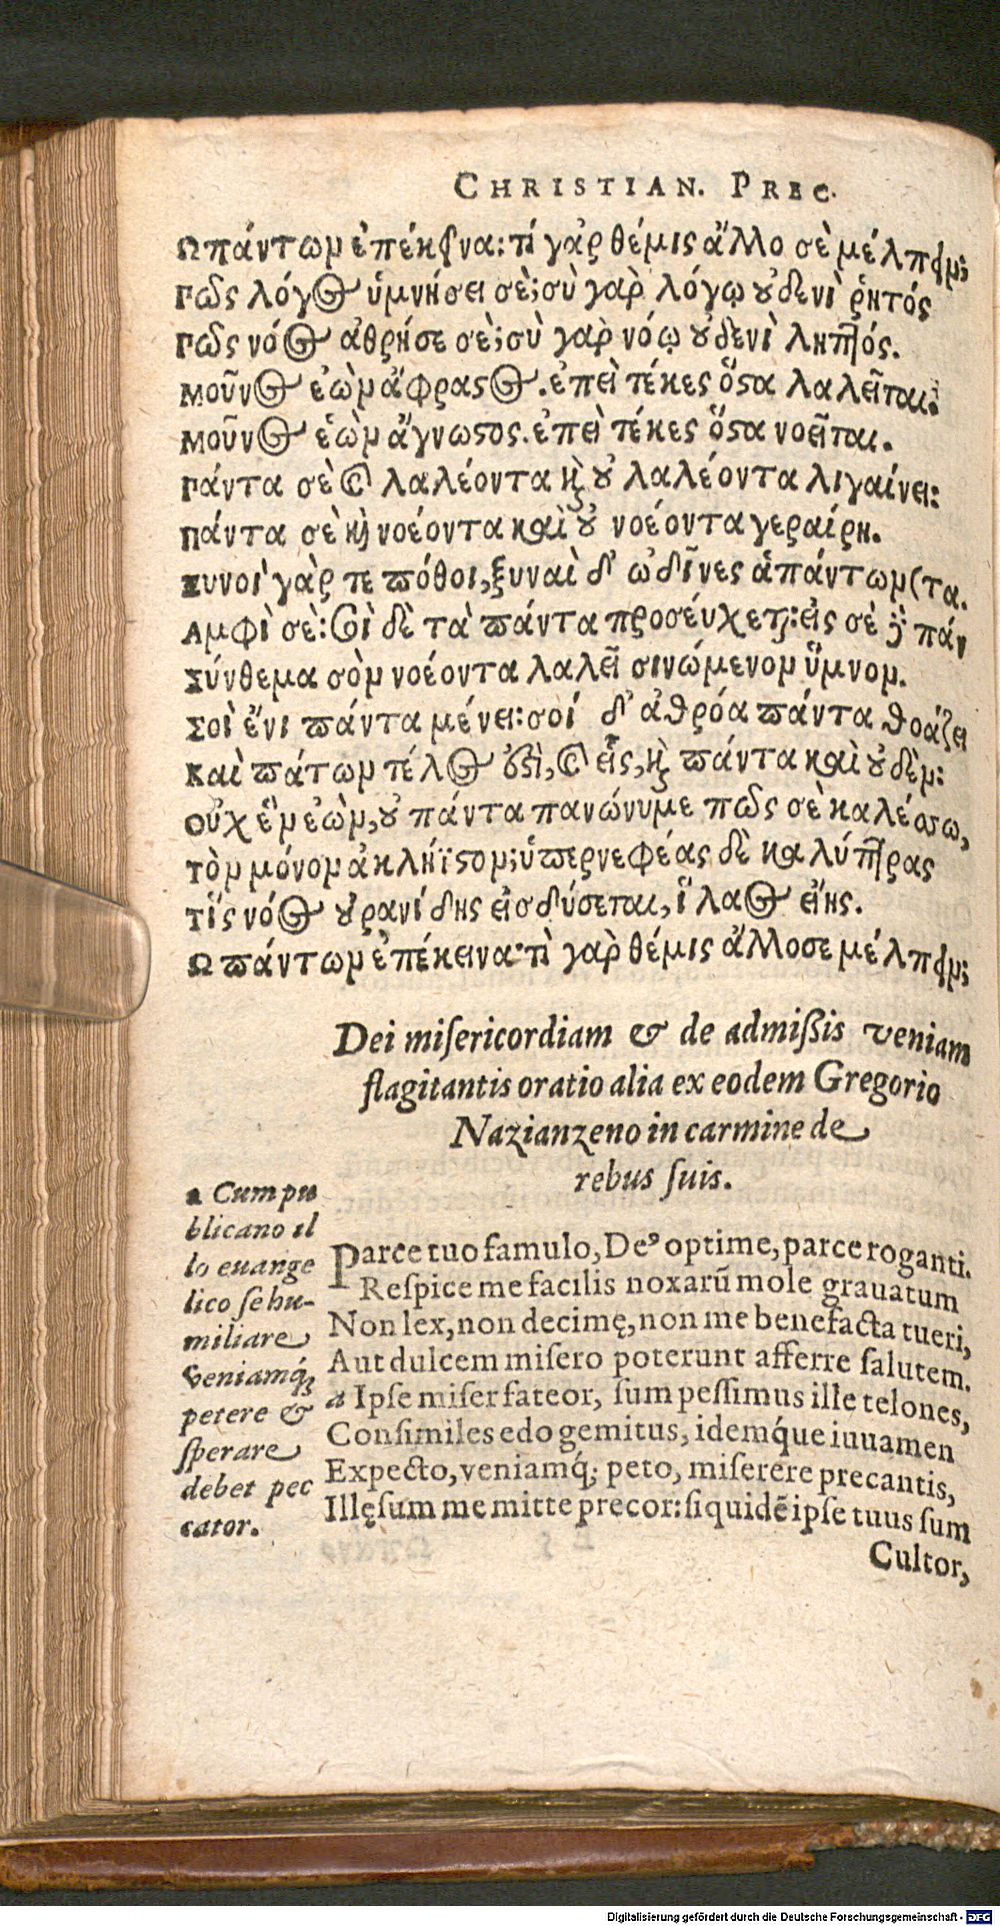 CHRISTIAN. PREC.
Ω πάντωμ ἐπέκεινα: τί γὰρ θέμις ἄλλο σὲ μέλπειμ;
Πῶς λόγος ὑμνήσει σὲ; σὺ γὰρ λόγῳ οὐδενὶ ῥητός
Πῶς νόος ἀθρήσε σὲ; σὺ γὰρ νόῳ οὐδὲνὶ ληπτός.
Μοῦνος ἐὼμ ἄφραστος. ἐπεὶ τέκες ὅστα λαλεῖται.
Μοῦνος ἐὼμ ἄγνωστος. ἐπεὶ τέκες ὅστα νοεῖται.
Πάντα σὲ καὶ λαλέοντα καὶ οὐ λαλέοντα λιγαίνει:
Πάντα σὲ καὶ νοέοντα καὶ οὐ νοέοντα γεραίρη.
Ξυνοὶ γὰρ τε πόθοι, ξυναὶ δ' ὠδῖνες ἁπάντωμ (τα.
Αμφὶ σὲ: Σοὶ δὲ τὰ πάντα προσέυχεται: εἰς σὲ δὲ πάν
Σύνθεμα σὸμ νοέοντα λαλεῖ σινώμενομ ὕμνομ.
Σοὶ ἔνι πάντα μένει: σοί δ' ἀθρόα πάντα θοάζει
Καὶ πάτωμ τέλος ἐσσὶ, καὶ εἷς, καὶ πάντα καὶ οὐδὲμ:
Οὐχ ἓμ ἐὼμ, οὐ πάντα πανώνυμε πῶς σὲ καλέσσω,
Τὸμ μόνομ ἀκλήϊστομ; ὑπερνεφέας δὲ καλύπτρας
Τίς νόος οὐρανίδης εἰσδύσεται, ἵλαος εἴης.
Ω πάντωμ ἐπέκεινα· τὶ γὰρ θέμις ἄλλοσε μέλπειμ;
Dei misericordiam & de admißis veniam
flagitantis oratio alia ex eodem Gregorio
Nazianzeno in carmine de
rebus suis.
a Cum pu
blicano il
lo euange
lico se hu-
miliare
veniamq́;
petere &
sperare
debet pec
cator.
Parce tuo famulo, De⁹ optime, parce roganti.
Respice me facilis noxarū mole grauatum
Non lex, non decimę, non me benefacta tueri,
Aut dulcem misero poterunt afferre salutem.
a Ipse miser fateor, sum pessimus ille telones,
Consimiles edo gemitus, idemq́ue iuuamen
Expecto, veniamq́; peto, miserere precantis,
Illęsum me mitte precor: siquidē ipse tuus sum
Cultor,
Digitalisierung gefördert durch die Deutsche Forschungsgemeinschaft - DFG